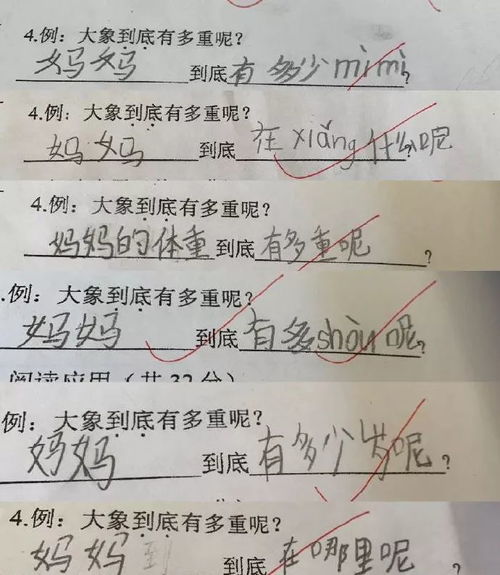 4.例：大象到底有多重呢？
妈妈到底有多少mìmì？
4.例：大象到底有多重呢？
妈妈到底在xiǎng什么呢？
4.例：大象到底有多重呢？
妈妈的体重到底有多重呢？
.例：大象到底有多重呢？
妈妈到底有多shòu呢？
阅读应用（共32分）
例：大象到底有多重呢？
妈妈到底有多少岁呢？
4.例：大象到底有多重呢？
妈妈到到底在哪里呢？